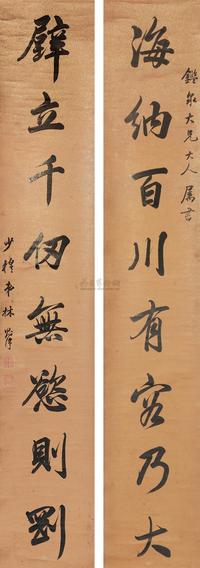 鑑泉大兄大人属書
海納百川有容乃大
壁立千仞無慾則剛
少穆弟林